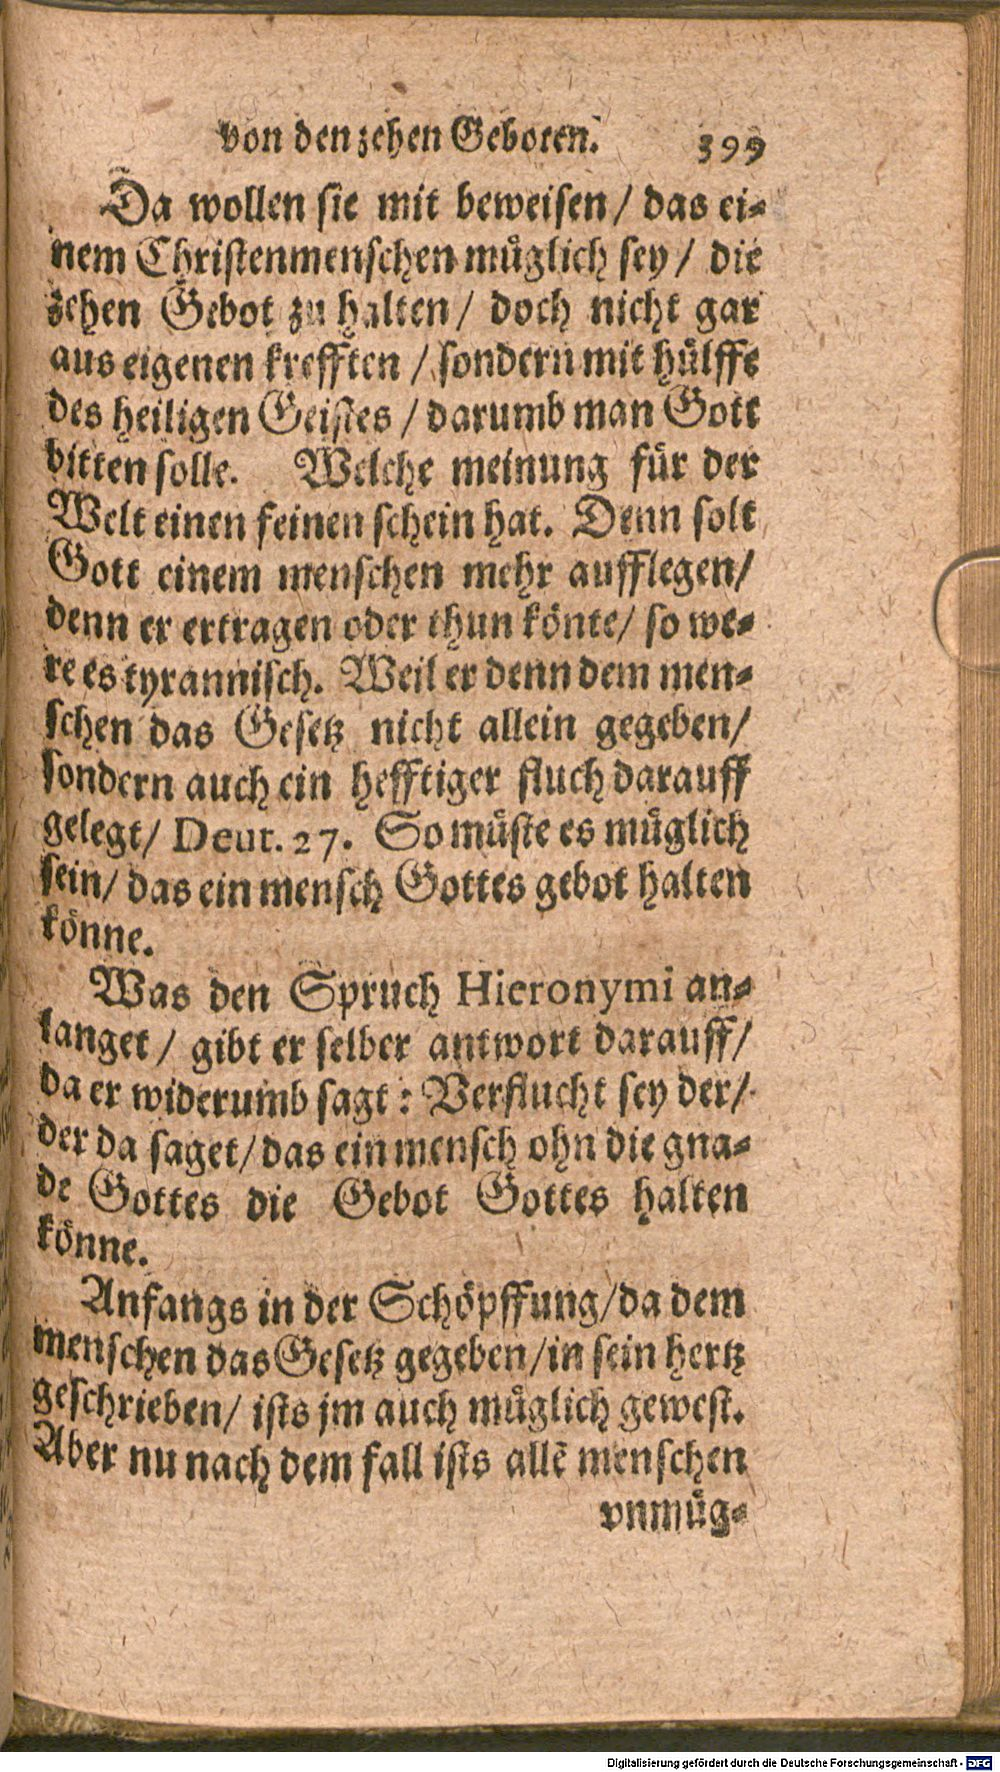 von den zehen Geboten. 399
Da wollen sie mit beweisen / das ei-
nem Christenmenschen müglich sey / die
zehen Gebot zu halten / doch nicht gar
aus eigenen krefften / sondern mit hülffe
des heiligen Geistes / darumb man Gott
bitten solle. Welche meinung für der
Welt einen feinen schein hat. Denn solt
Gott einem menschen mehr aufflegen /
denn er ertragen oder thun könte / so we-
re es tyrannisch. Weil er denn dem men-
schen das Gesetz nicht allein gegeben /
sondern auch ein hefftiger fluch darauff
gelegt / Deut. 27. So müste es müglich
sein / das ein mensch Gottes gebot halten
könne.
Was den Spruch Hieronymi an-
langet / gibt er selber antwort darauff /
da er widerumb sagt : Verflucht sey der /
der da saget / das ein mensch ohn die gna-
de Gottes die Gebot Gottes halten
könne.
Anfangs in der Schöpffung / da dem
menschen das Gesetz gegeben / in sein hertz
geschrieben / ists jm auch müglich gewest.
Aber nu nach dem fall ists allē menschen
vnmüg-
Digitalisierung gefördert durch die Deutsche Forschungsgemeinschaft - DFG